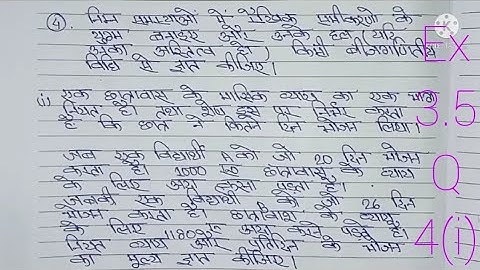 ④. निम्न समस्याओं में रैखिक समीकरणों के
युग्म बनाइए और उनके हल (यदि
उनका अस्तित्व हो) किसी बीजगणितीय
विधि से ज्ञात कीजिए।
(i) एक छात्रावास के मासिक व्यय का एक भाग
नियत है तथा शेष इस पर निर्भर करता
है कि छात्र ने कितने दिन भोजन लिया।
जब एक विद्यार्थी A को जो 20 दिन भोजन
करता है। 1000 रु० छात्रावास के व्यय
के लिए अदा करना पड़ता है।
जबकी एक विद्यार्थी को जो 26 दिन
भोजन करता है। छात्रावास के व्यय
के लिए 1180रु० अदा करने पड़ते है।
नियत व्यय और प्रतिदिन के भोजन
का मूल्य ज्ञात कीजिए।
EX
3.5
Q
4(i)